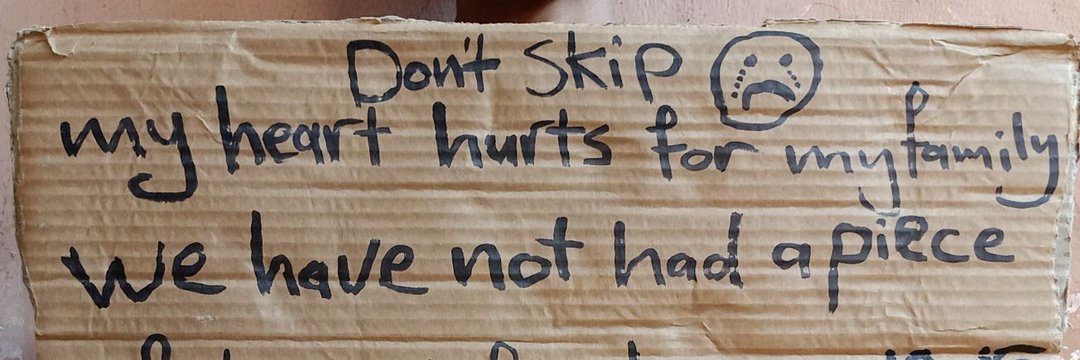 Don't Skip
my heart hurts for my family
we have not had a piece